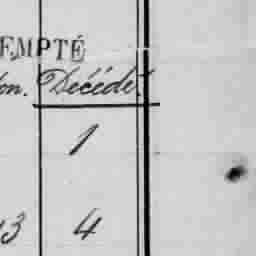 EMPTÉ
on. Décédé.
1
13 4